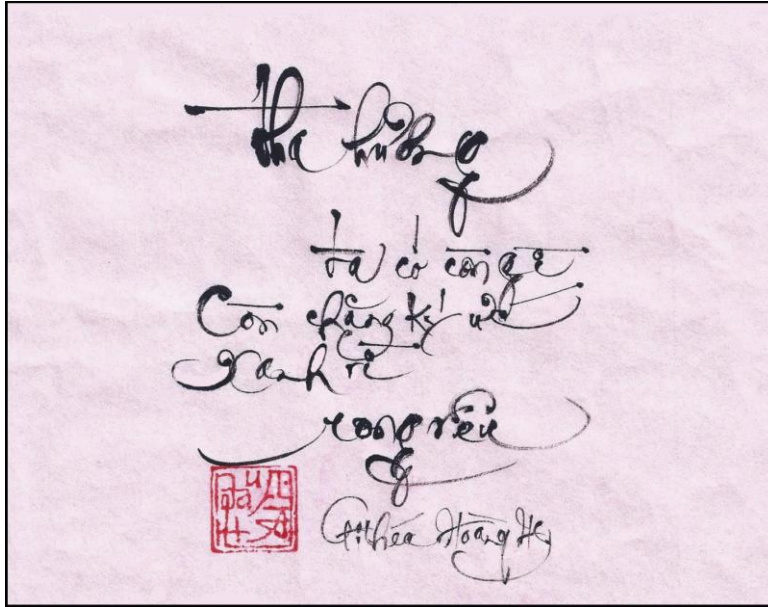 tha hương
ta có còn gì
Còn chăng kí ức
Xanh rì
rong rêu
Hoàng